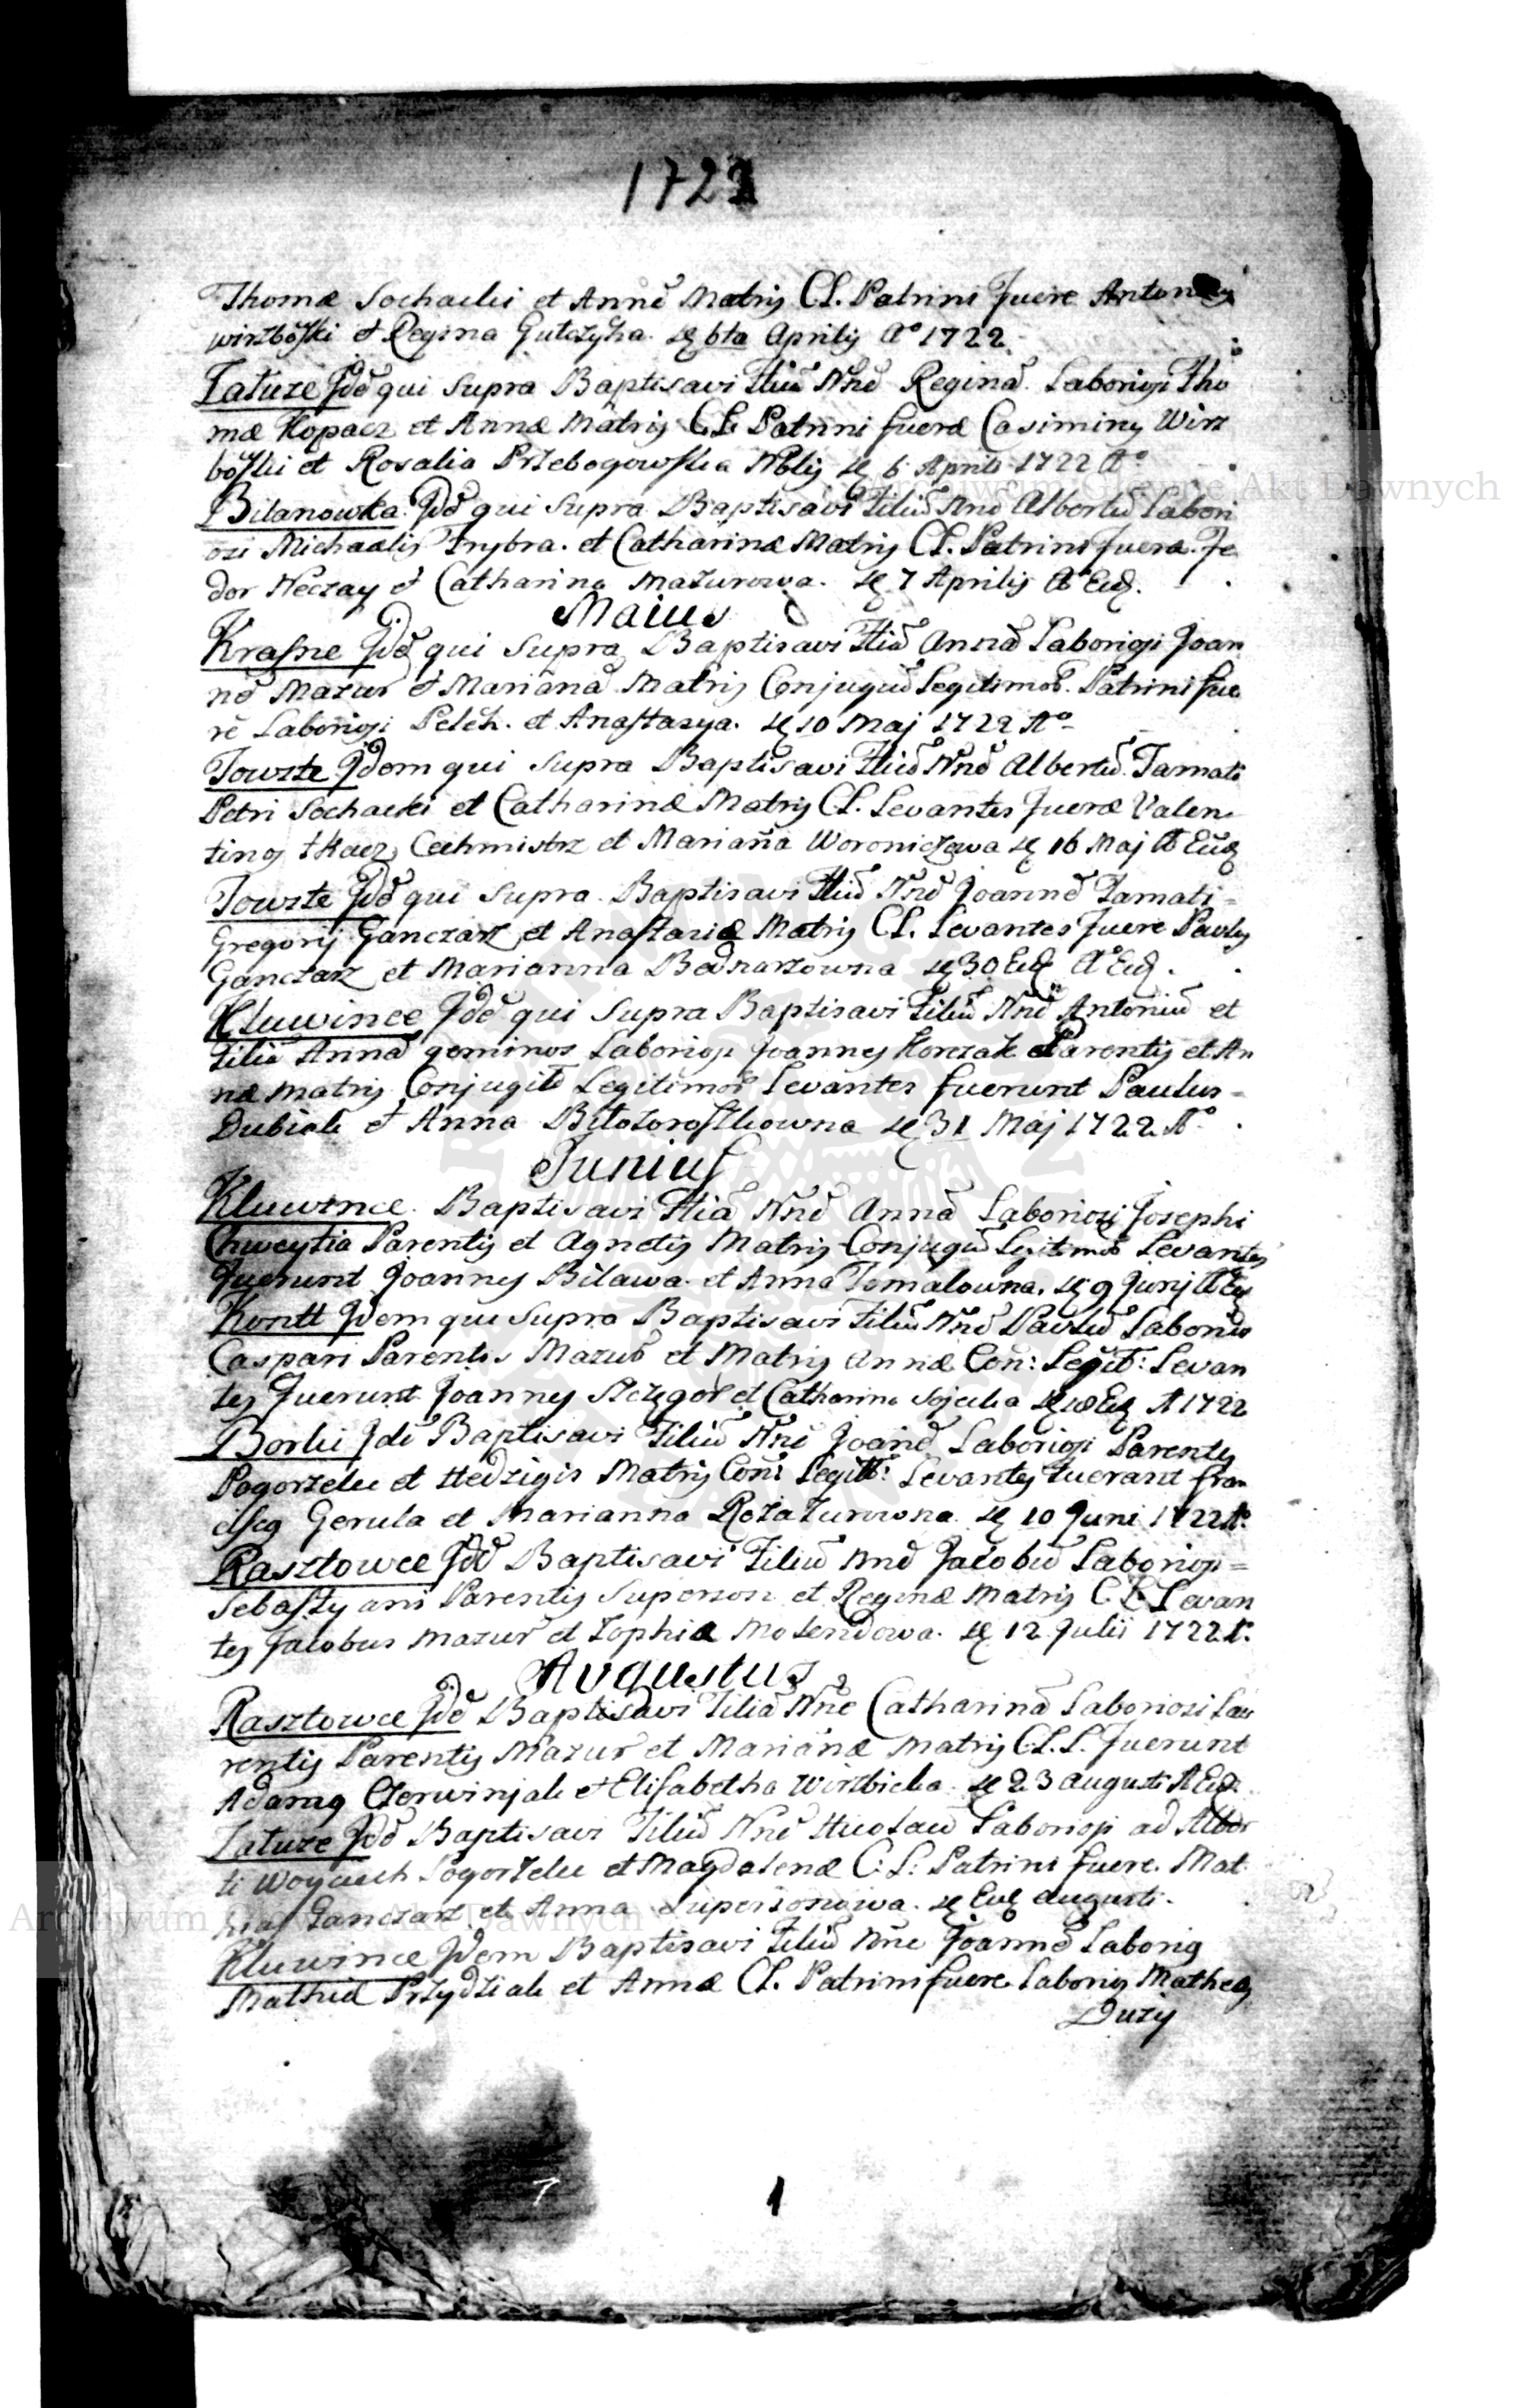 1722
Thomæ Sochacki et Annæ Matris CL. Patrini fuere Antonius
wirzboski et Regina Gulczyha. die 6ta Aprilis Ao 1722
Tatuze Jdē qui supra Baptisavi Filiā Nnē Reginā. Laboriosi Tho
mæ Kopacz et Annæ Matris CL Patrini fueræ Casimirus Wirz
boski et Rosalia Przebogowska Nblis die 6 Aprilis 1722 Ao
Bilanowka Jdē qui supra Baptisavi Filiū Nnē Albertū Labori
osi Michaelis Trybra. et Catharinæ Matris CL. Patrini fueræ. Fe
dor Neczay et Catharina Mazurowa. die 7 Aprilis Ao Eid.
Maius
Krasne Jdē qui supra Baptisavi Fliā Annā Laboriosi Joan
nē Mazur et Mariana Matris Conjugū Legitimor. Patrini fue
rē Laboriosi Pelēh. et Anastazya. die 10 Maj 1722 Ao
Towste Jdem qui supra Baptisavi Fliū Nnē Albertū. Famati
Petri Sochacki et Catharinæ Matris CL. Levantes fueræ Valen
tinus tkacz Cechmistrz et Mariaña Woroniczowa die 16 Maj Ao Eūd
Towste Jdē qui supra Baptisavi Fliū Nnē Joannē Famati =
Gregorij Ganczarz et Anastaziæ Matris CL. Levantes fuere Paulus
Ganczarz et Marianna Bednarzowna die 30 Eid Ao Eid.
Kluwince Jdē qui supra Baptisavi Filiū Nnē Antoniū et
Filiā Annā geminos Laboriosi Joannes Korczak Parentis et An
næ matris Conjugū Legitimor Levantes fuerunt Paulus =
Dubiak et Anna Bilozorostkowna die 31 Maj 1722 Ao
Junius
Kluwince. Baptisavi Fliā Nnē Annā Laboriosi Josephi
Chweytia Parentis et Agnetis Matris Conjugū Legitimor Levantes
fuerunt Joannes Bilawa et Anna Tomalowna. die 9 Junij Ao Eid
Kontt Jdem qui supra Baptisavi Filiū Nnē Paulū Laboriosi
Caspari Parentis Mazur et Matris Annæ Con: Legit: Levan
tes fuerunt Joannes Szczęgol et Catharina Sojecka die Eid A 1722
Borki Jdē Baptisavi Filiū Nnē Joānē Laboriosi Parentis
Pogorzelec et Hedzigis Matris Con: Legitt: Levantes fuerant fran
ciscq Gerula et Marianna Rozazurowna die 10 Juni 1722 Ao
Rasztowce Jdē Baptisavi Filiū Nnē Jacobū Laboriosi =
Sebastyani Parentis Superson et Reginæ Matris C L Levan
tes Jacobus Mazur et Zophia Molendowa. die 12 Julii 1722 A.
Avgustus
Rasztowce Jdē Baptisavi Filiā Nnē Catharinā Laboriosi Lau
rentis Parentis Mazur et Marianæ Matris CL.L. Fuerunt
Adamq Czerwinjak et Elisabetha Wirzbicka die 23 augusti A Eid.
Tatuze Jdē Baptisavi Filiū Nnē Nicolaū Laboriosi ad Alber
ti Woyciech Pogorzelec et Magdalenæ C: L: Patrini fuere. Mat
hias Ganczarz et Anna Supersonowa. die Eid augusti.
Kluwince Jdem Baptisavi Filiū Nnē Joannē Laborio
Mathiæ Przydziak et Annæ CL. Patrini fuere. Laborios Matheq
Duzij
1
Archiwum Główne Akt Dawnych
Archiwum Główne Akt Dawnych